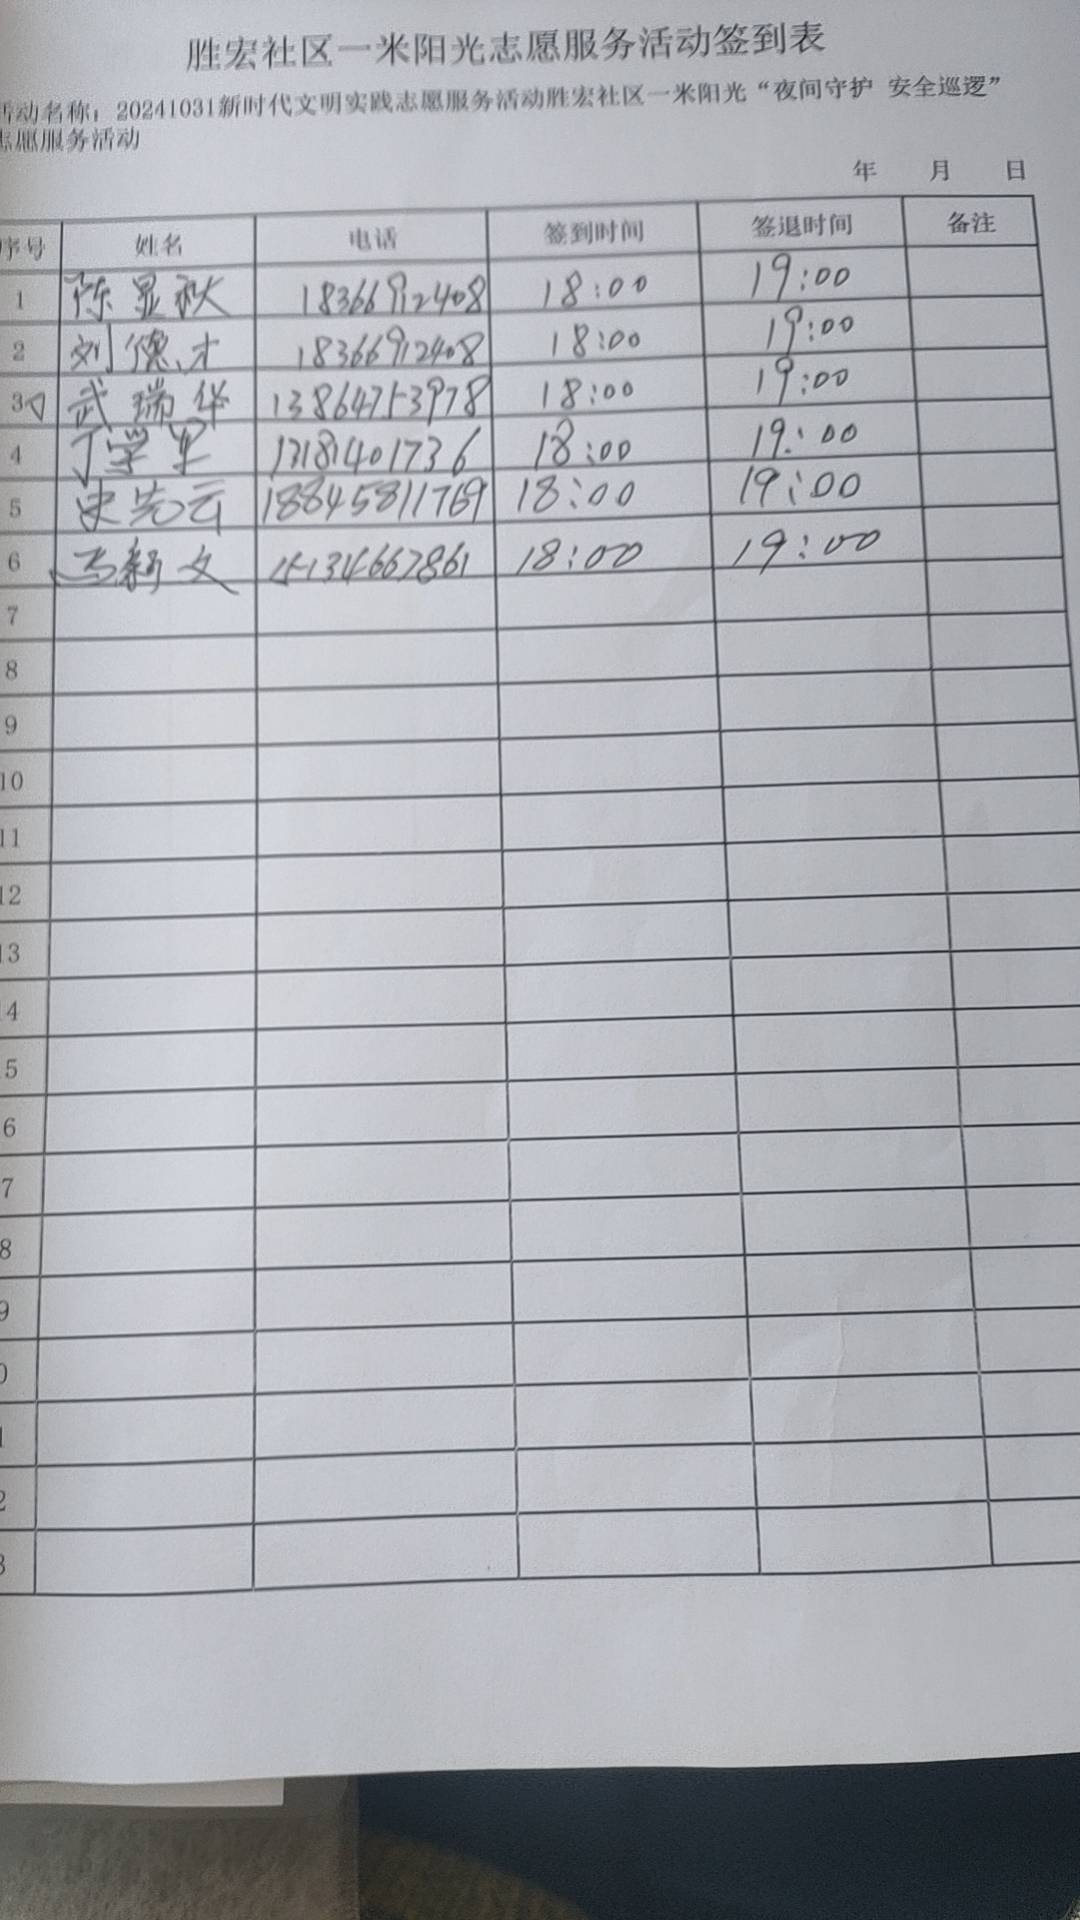 胜宏社区一米阳光志愿服务活动签到表
活动名称：20241031新时代文明实践志愿服务活动胜宏社区一米阳光“夜间守护 安全巡逻”
志愿服务活动
年 月 日
序号 姓名 电话 签到时间 签退时间 备注
1 陈显秋 18366912408 18:00 19:00
2 刘德才 18366912408 18:00 19:00
3 武瑞华 13864753978 18:00 19:00
4 丁学军 13181401736 18:00 19:00
5 史先云 18845811769 18:00 19:00
6 马新文 18:00 19:00
7
8
9
10
11
12
13
4
5
6
7
8
9
0
1
2
3